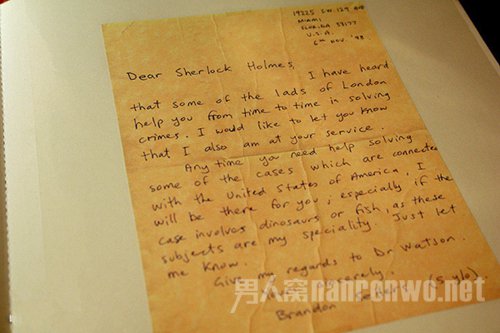 19225 SW. 129 AVE
MIAMI
FLORIDA 33177
U.S.A.
6TH NOV. '98
Dear Sherlock Holmes,
I have heard
that some of the lads of London
help you from time to time in solving
crimes. I would like to let you know
that I also am at your service.
Any time you need help solving
some of the cases which are connected
with the United States of America, I
will be there for you; especially if the
case involves dinosaurs or fish, as these
subjects are my speciality. Just let
me know.
Give my regards to Dr Watson.
Sincerely,
Brandon (5 y/o).
男人窝nanrenwo.net